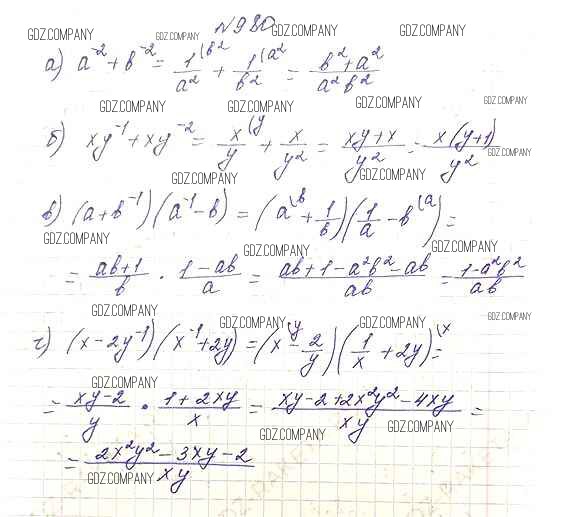 №980
GDZ.COMPANY GDZ.COMPANY GDZ.COMPANY GDZ.COMPANY
а) a⁻² + b⁻² = 1/a² (b² + 1/b² (a² = (b² + a²)/(a²b²)
GDZ.COMPANY GDZ.COMPANY GDZ.COMPANY GDZ.COMPANY
б) xy⁻¹ + xy⁻² = x/y (y + x/y² = (xy + x)/y² = x(y+1)/y²
GDZ.COMPANY
GDZ.COMPANY GDZ.COMPANY
в) (a + b⁻¹)(a⁻¹ - b) = (a (b + 1/b)(1/a - b (a) =
GDZ.COMPANY GDZ.COMPANY GDZ.COMPANY
= (ab+1)/b · (1-ab)/a = (ab+1-a²b²-ab)/(ab) = (1-a²b²)/(ab)
GDZ.COMPANY GDZ.COMPANY GDZ.COMPANY GDZ.COMPANY
г) (x - 2y⁻¹)(x⁻¹ + 2y) = (x (y - 2/y)(1/x + 2y) (x =
GDZ.COMPANY
= (xy-2)/y · (1+2xy)/x = (xy-2+2x²y²-4xy)/(xy) =
GDZ.COMPANY GDZ.COMPANY
= (2x²y²-3xy-2)/(xy)
GDZ.COMPANY